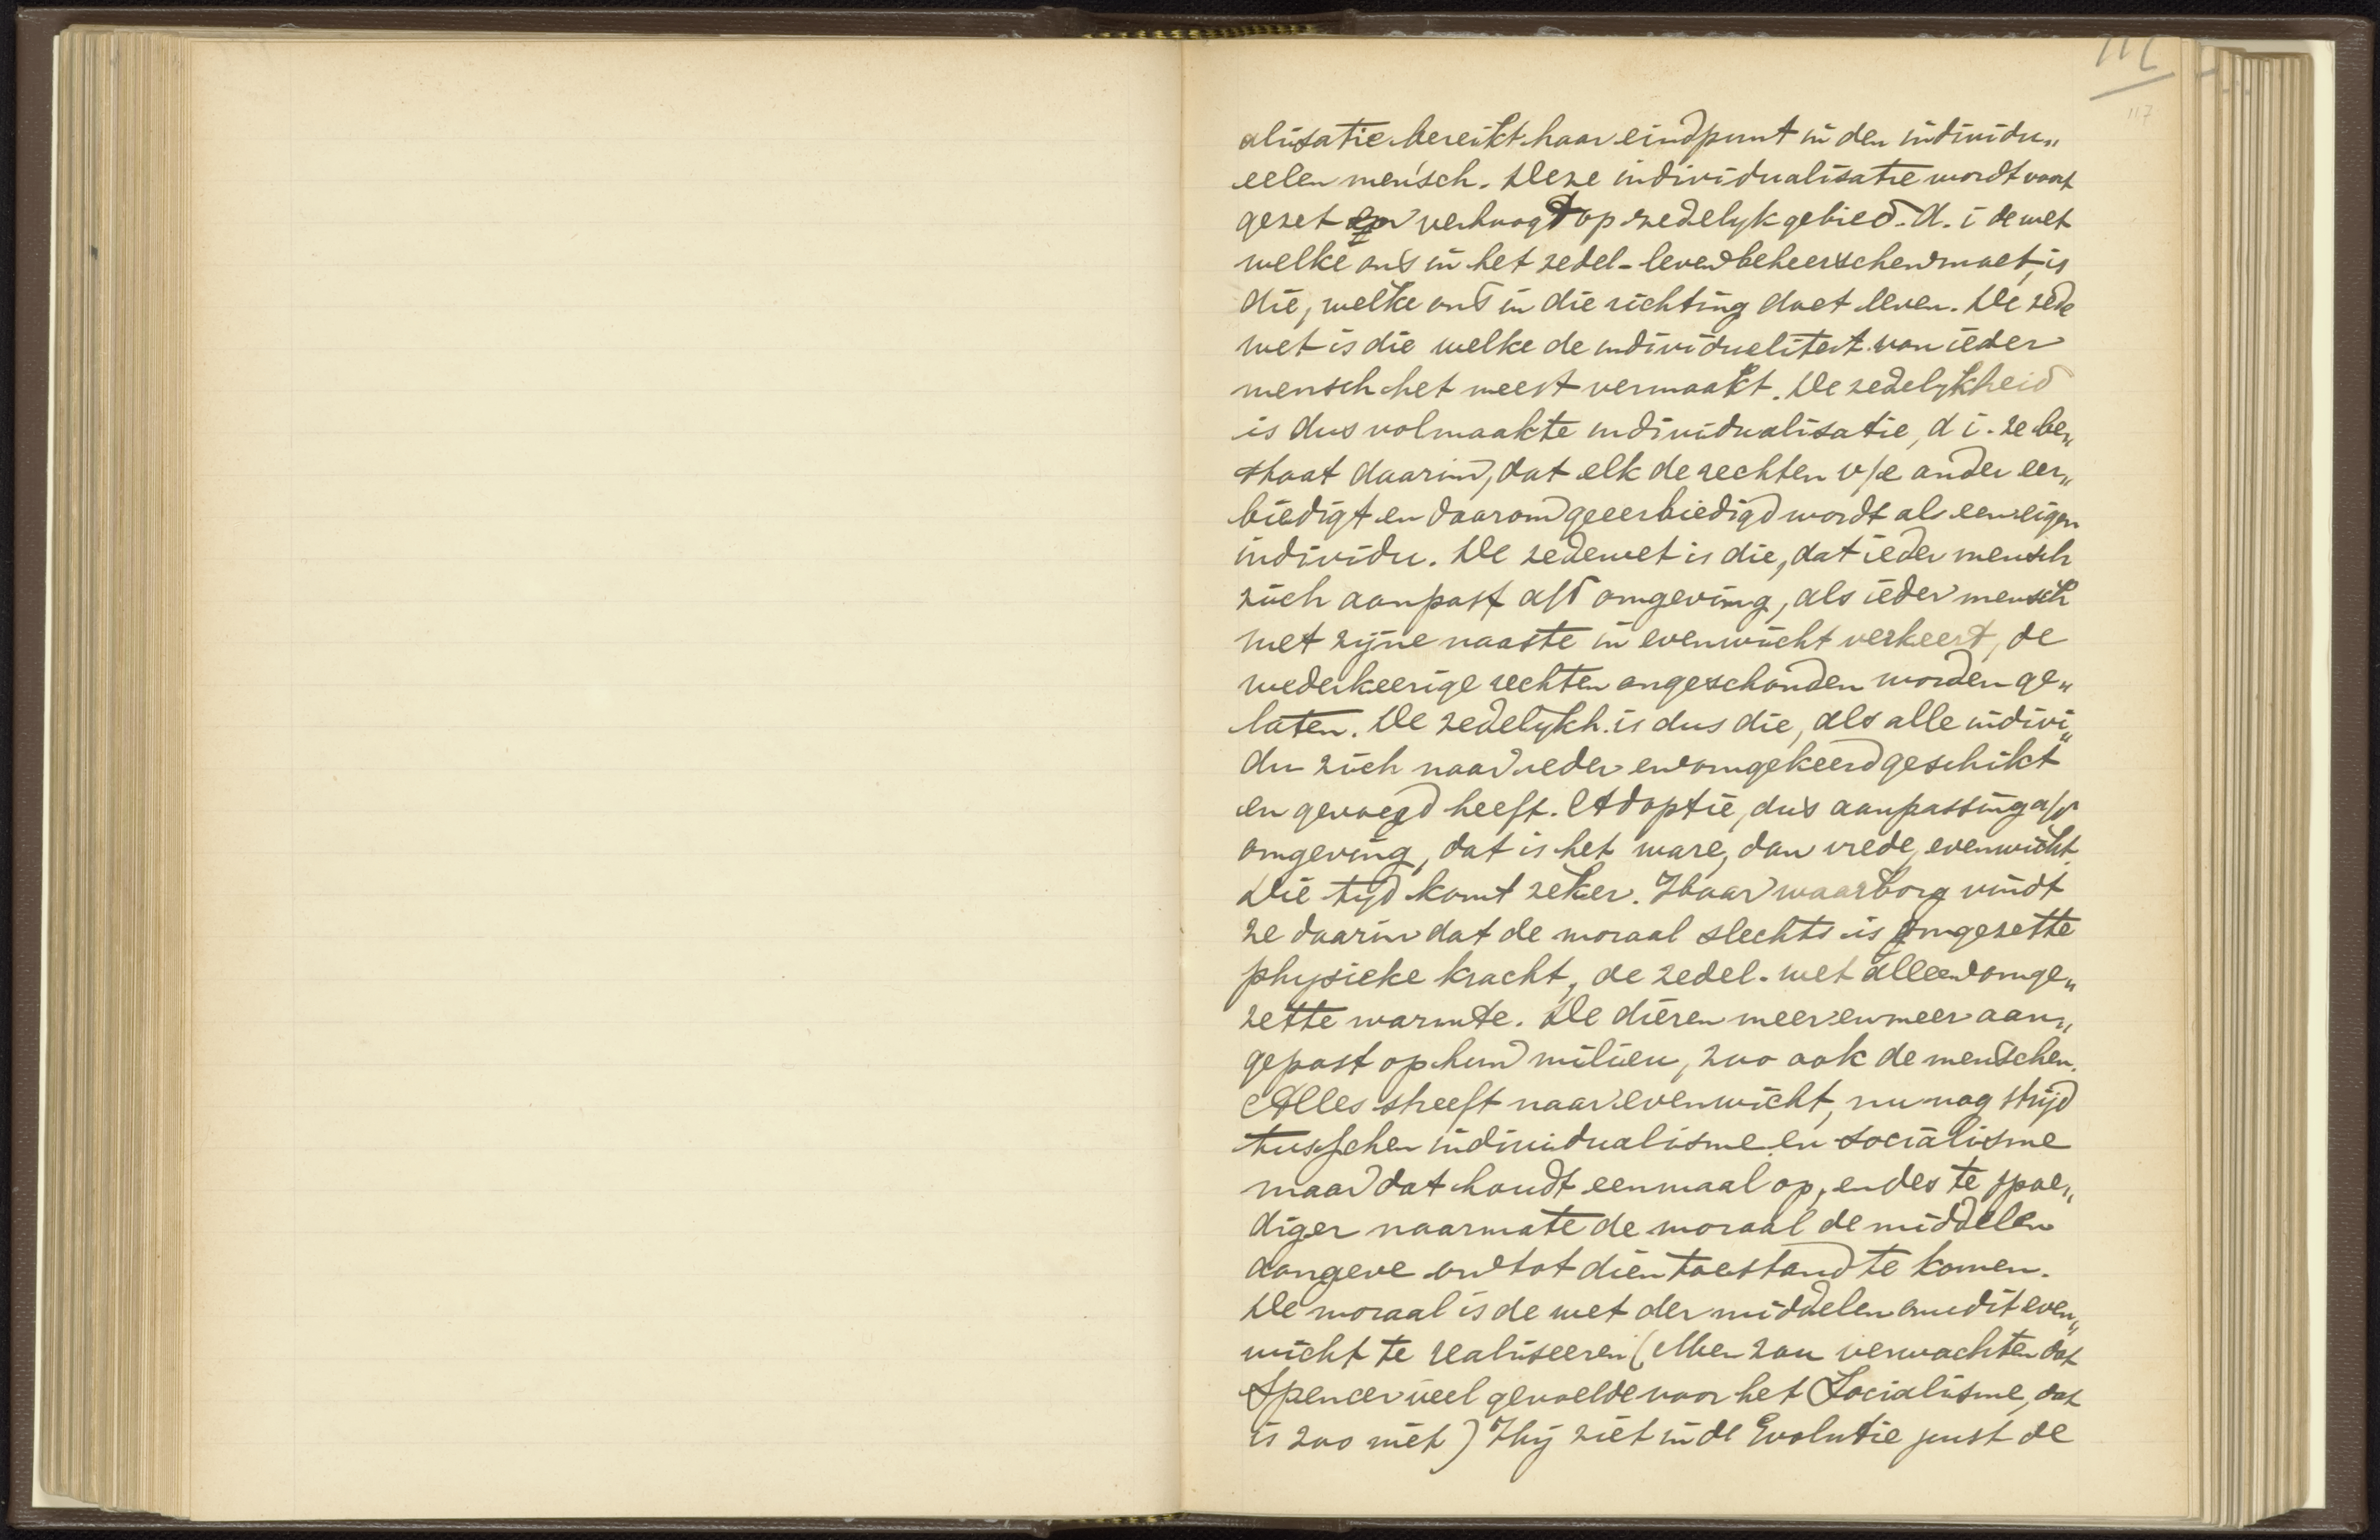 117
117
alisatie bereikt haar eindpunt in den individu„
eelen mensch. Deze individualisatie wordt voort
gezet en verhoogt op zedelyk gebied. D. i de wet
welke ons in het zedel-leven beheerschen moet, is
die, welke ons in die richting doet leven. De zede
wet is die welke de individueliteit van ieder
mensch het meest vermaakt. De zedelykheid
is dus volmaakte individualisatie, d i. ze be„
staat daarin, dat elk de rechten v/e ander eer„
biedigt en daarom geeerbiedigd wordt als een eigen
individu. De zedewet is die, dat ieder mensch
zich aanpast a/d omgeving, als ieder mensch
met zijne naaste in evenwicht verkeert, de
wederkeerige rechten ongeschonden worden ge„
laten. De zedelykh. is dus die, als alle indivi„
du zich naar ieder en omgekeerd geschikt
en gevoegd heeft. Adoptie, dus aanpassing a/d
omgeving, dat is het ware, dan vrede, evenwicht.
Die tijd komt zeker. Haar waarborg vindt
ze daarin dat de moraal slechts is omgezette
physieke kracht, de zedel. wet alleen omge„
zette warmte. De dieren meer en meer aan„
gepast op hun milieu, zoo ook de menschen.
Alles streeft naar evenwicht, nu nog strijd
tusschen individualisme en socialisme
maar dat houdt eenmaal op, en des te spoe„
diger naarmate de moraal de middelen
aangeve om tot dien toestand te komen.
De moraal is de wet der middelen om dit even„
wicht te realiseeren (Men zou verwachten dat
Spencer veel gevoelde voor het Socialisme, dat
is zoo niet) Hij ziet in de Evolutie juist de